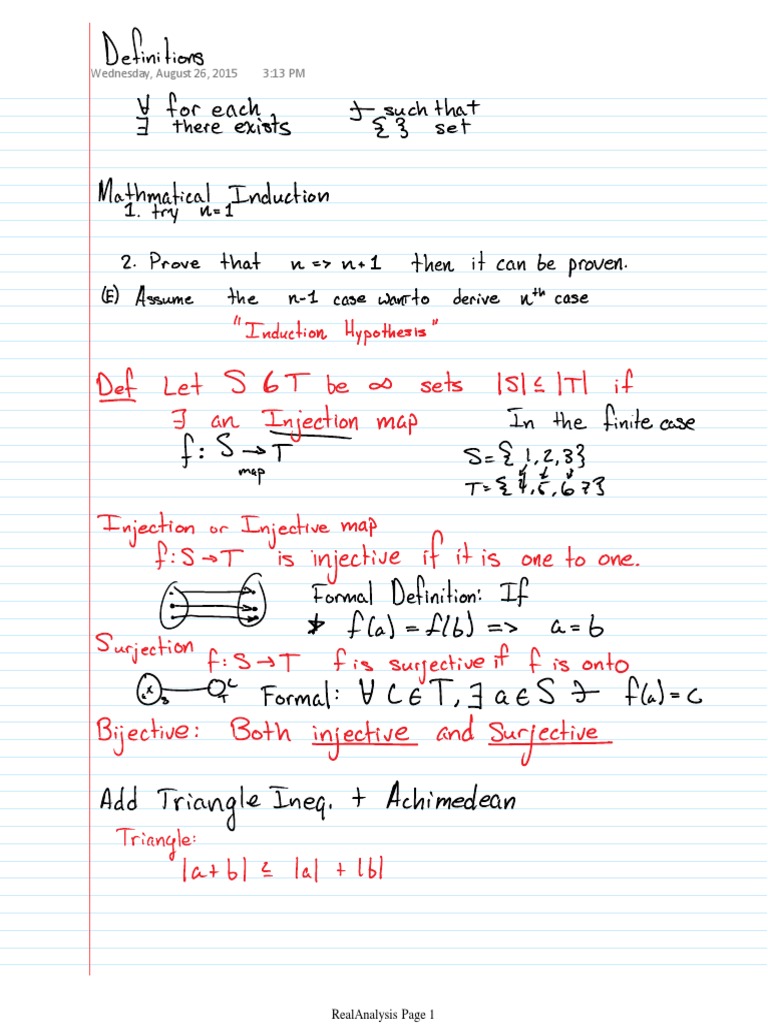 Definitions
Wednesday, August 26, 2015 3:13 PM
∀ for each ∋ such that
∃ there exists { } set
Mathmatical Induction
1. try n=1
2. Prove that n => n+1 then it can be proven.
(E) Assume the n-1 case want to derive nth case
"Induction Hypothesis"
Def Let S & T be ∞ sets |S| ≤ |T| if
∃ an Injection map In the finite case
f: S → T S = { 1, 2, 3}
map T = { 4, 5, 6 7}
Injection or Injective map
f: S → T is injective if it is one to one.
Formal Definition: If
f(a) = f(b) => a = b
Surjection f: S → T f is surjective if f is onto
x S C T Formal: ∀ C ∈ T, ∃ a ∈ S ∋ f(a) = c
Bijective: Both injective and Surjective
Add Triangle Ineq. + Achimedean
Triangle:
|a + b| ≤ |a| + |b|
RealAnalysis Page 1